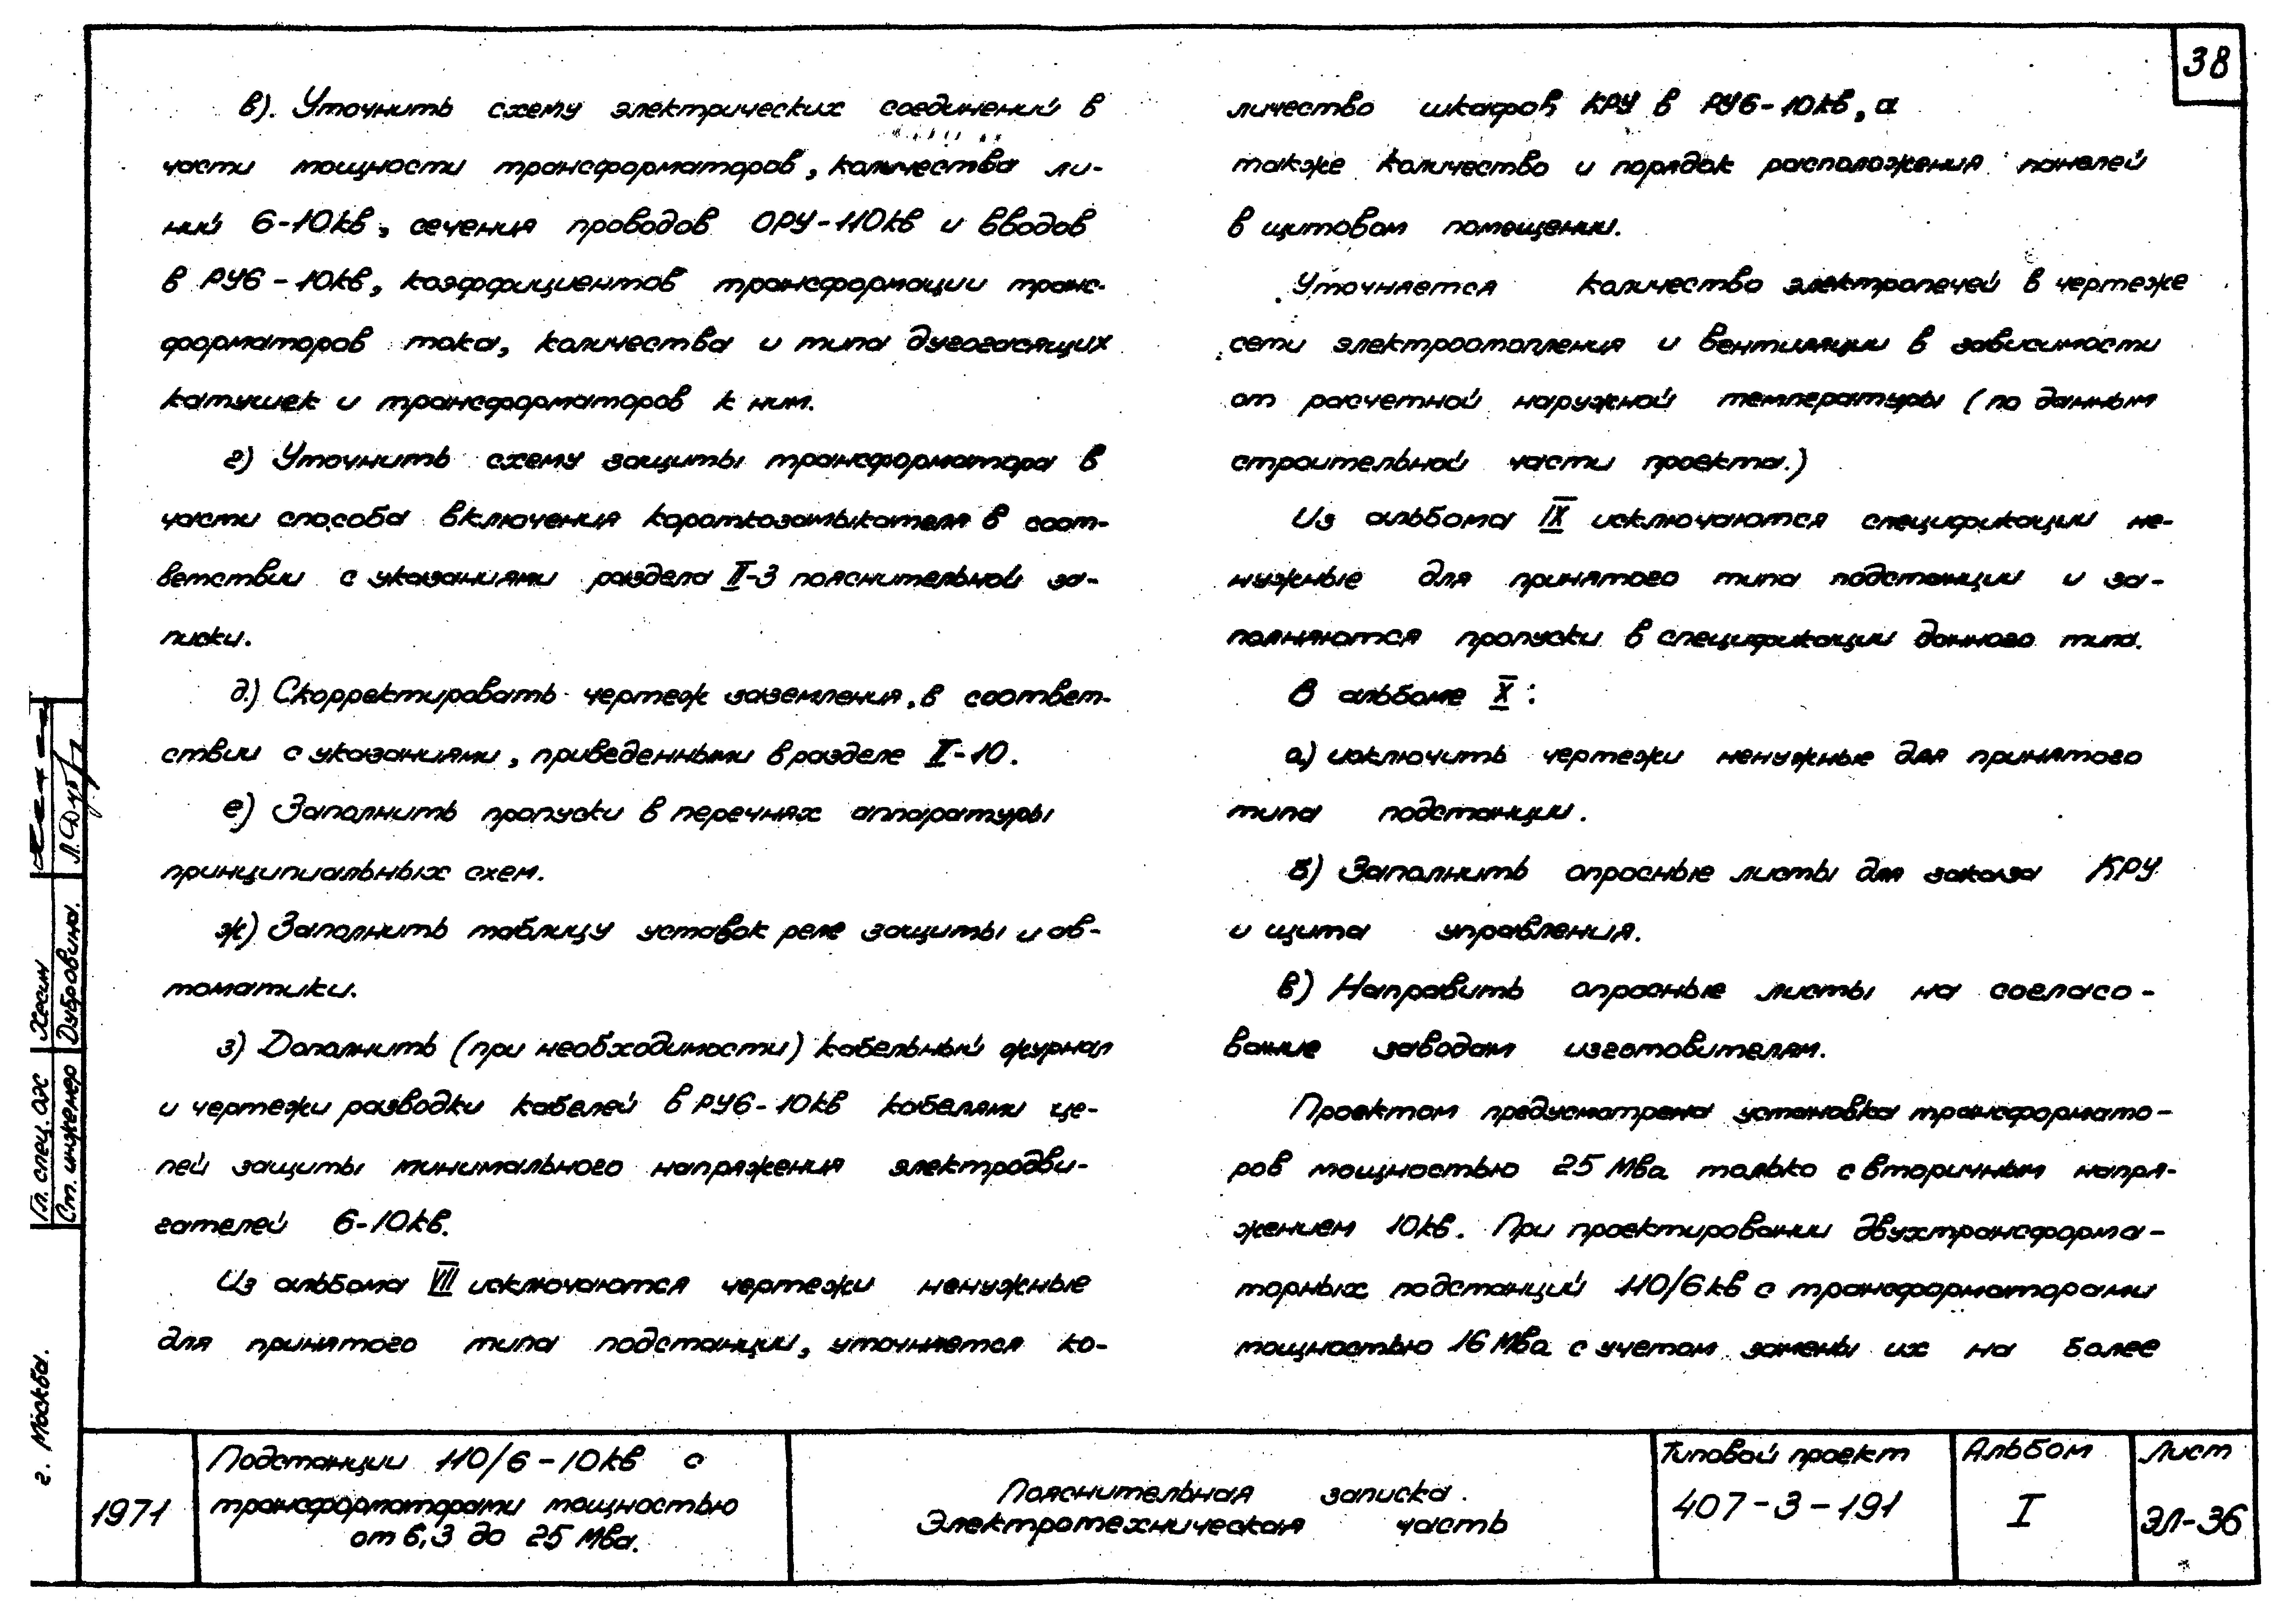 38
в). Уточнить схему электрических соединений в
части мощности трансформаторов, количества ли-
ний 6-10кв, сечения проводов ОРУ-110кв и вводов
в РУ6-10кв, коэффициентов трансформации транс-
форматоров тока, количества и типа дугогасящих
катушек и трансформаторов к ним.
г) Уточнить схему защиты трансформатора в
части способа включения короткозамыкателя в соот-
ветствии с указаниями раздела II-3 пояснительной за-
писки.
д.) Скорректировать чертеж заземления, в соответ-
ствии с указаниями, приведенными в разделе II-10.
е) Заполнить пропуски в перечнях аппаратуры
принципиальных схем.
ж) Заполнить таблицу уставок реле защиты и ав-
томатики.
з) Дополнить (при необходимости) кабельный журнал
и чертежи разводки кабелей в РУ6-10кв кабелями це-
пей защиты минимального напряжения электродви-
гателей 6-10кв.
Из альбома VII исключаются чертежи ненужные
для принятого типа подстанции, уточняется ко-
личество шкафов КРУ в РУ6-10кв, а
также количество и порядок расположения панелей
в щитовом помещении.
Уточняется количество электропечей в чертеже
сети электроотопления и вентиляции в зависимости
от расчетной наружной температуры (по данным
строительной части проекта.)
Из альбома IX исключаются спецификации не-
нужные для принятого типа подстанции и за-
полняются пропуски в спецификации данного типа.
В альбоме X:
а) исключить чертежи ненужные для принятого
типа подстанции.
б) Заполнить опросные листы для заказа КРУ
и щита управления.
в) Направить опросные листы на согласо-
вание заводам изготовителям.
Проектом предусмотрена установка трансформато-
ров мощностью 25 Мва только с вторичным напря-
жением 10кв. При проектировании двухтрансформа-
торных подстанций 110/6кв с трансформаторами
мощностью 16 Мва с учетом замены их на более
Гл. спец. ОЭС Хесин
Ст. инженер Дубровина.
г. Москва.
1971
Подстанции 110/6-10кв с
трансформаторами мощностью
от 6,3 до 25 Мва.
Пояснительная записка.
Электротехническая часть
Типовой проект
407-3-191
Альбом
I
Лист
ЭЛ-36